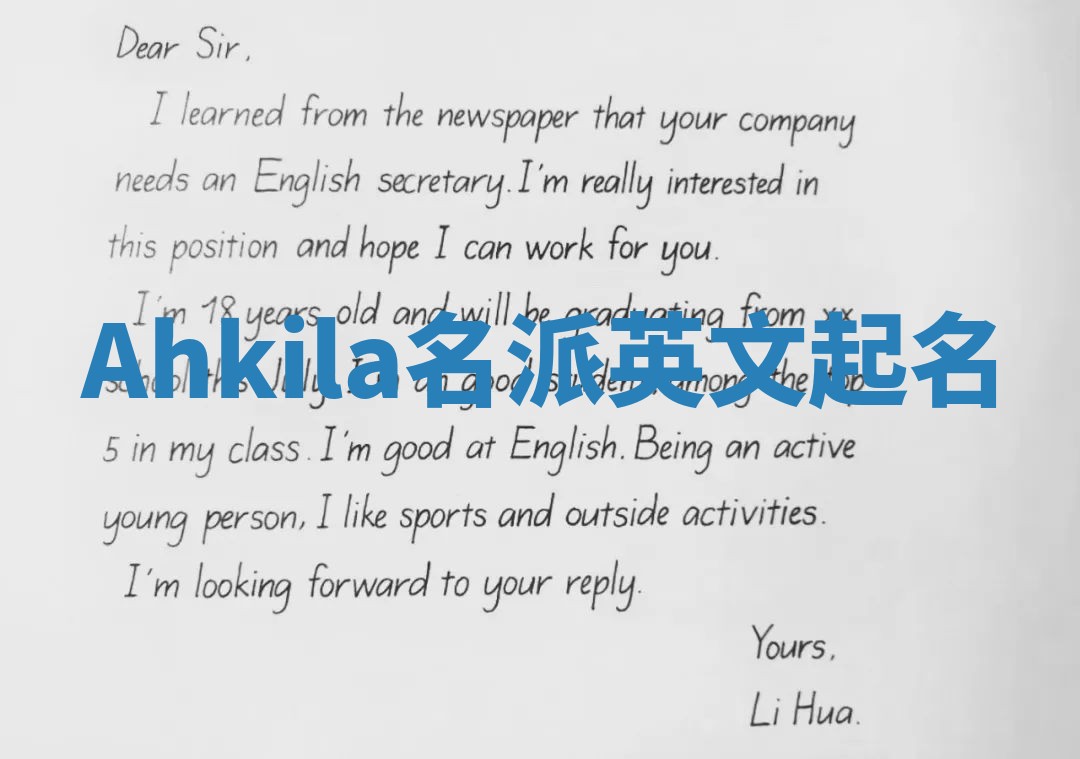 Dear Sir,
I learned from the newspaper that your company
needs an English secretary. I'm really interested in
this position and hope I can work for you.
I'm 18 years old and will be graduating from xx
Ahkila名派英文起名
school this July. I'm an good student, among the top
5 in my class. I'm good at English. Being an active
young person, I like sports and outside activities.
I'm looking forward to your reply.
Yours,
Li Hua.